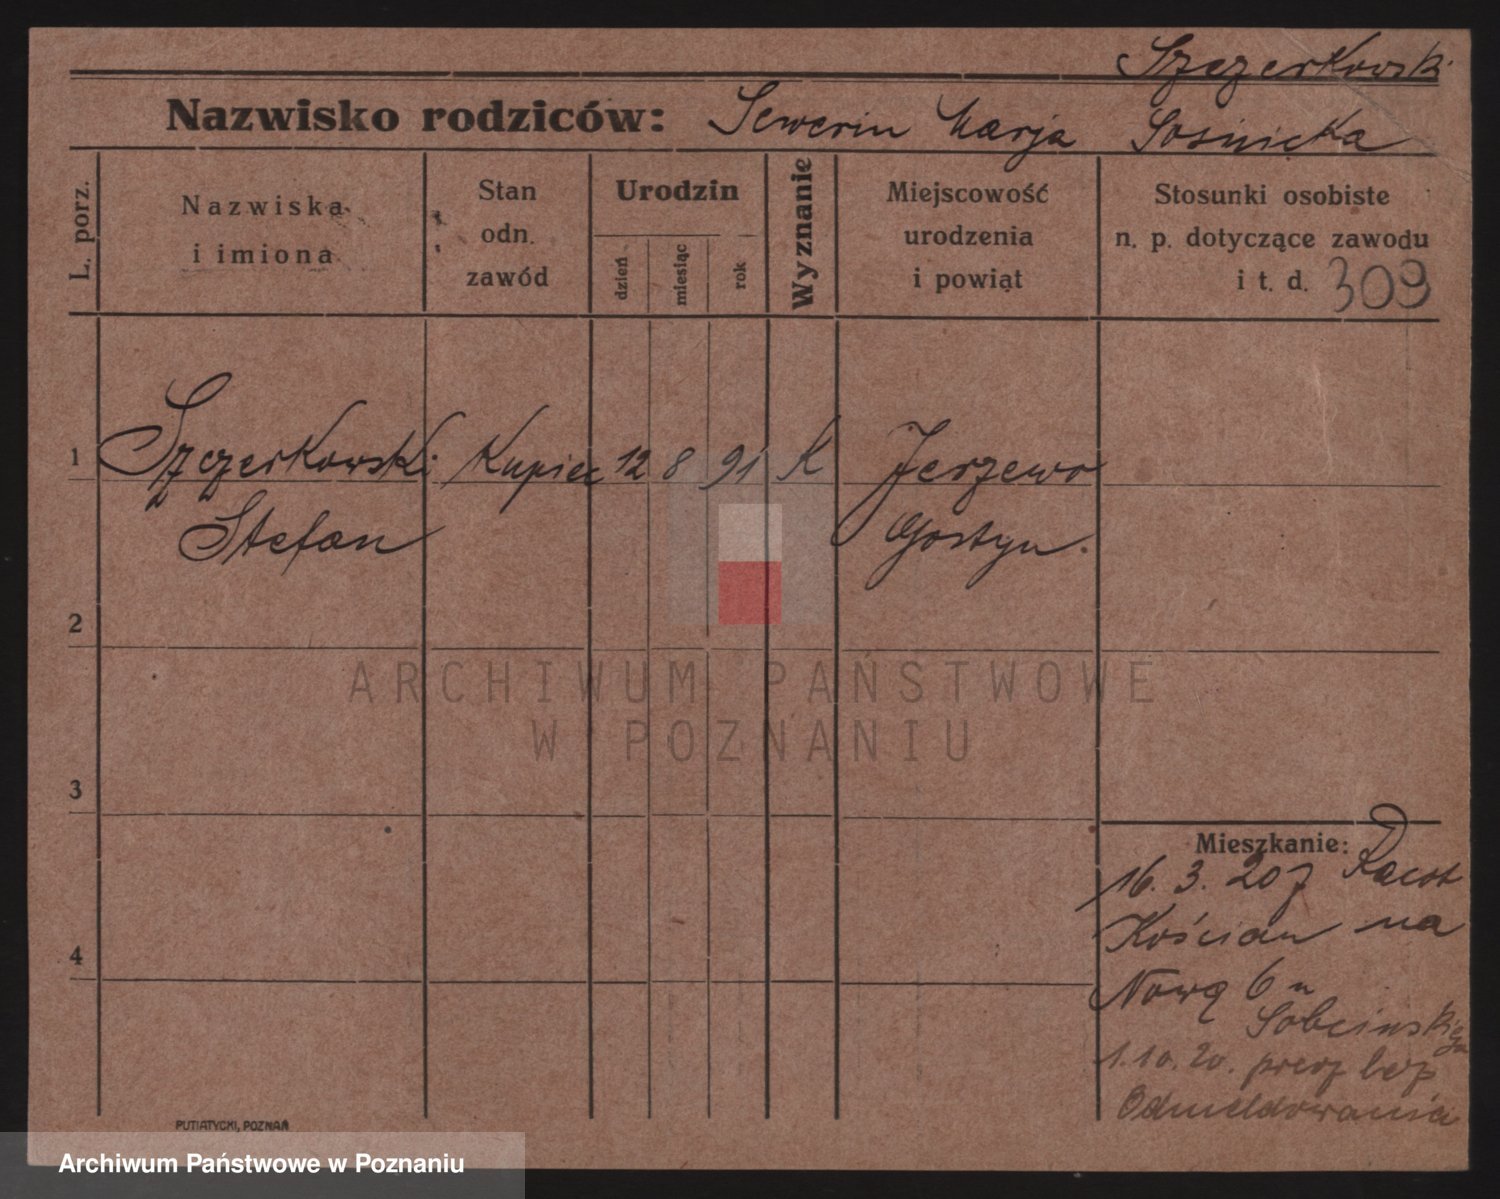 Szczerkowski
Nazwisko rodziców: Sewerin Marja Sośnicka
L. porz.
Nazwiska
i imiona
Stan
odn.
zawód
Urodzin
dzień
miesiąc
rok
Wyznanie
Miejscowość
urodzenia
i powiat
Stosunki osobiste
n. p. dotyczące zawodu
i t. d. 309
1 Szczerkowski Kupiec 12 8 91 K Jerzewo
Stefan Gostyn.
2
ARCHIWUM PAŃSTWOWE
W POZNANIU
3
Mieszkanie:
16. 3. 20 z Racot
Kościan na
Nową 6 u
Sobcinskiego
1.10.20. precz bez
Odmeldowania
4
PUTIATYCKI, POZNAŃ
Archiwum Państwowe w Poznaniu